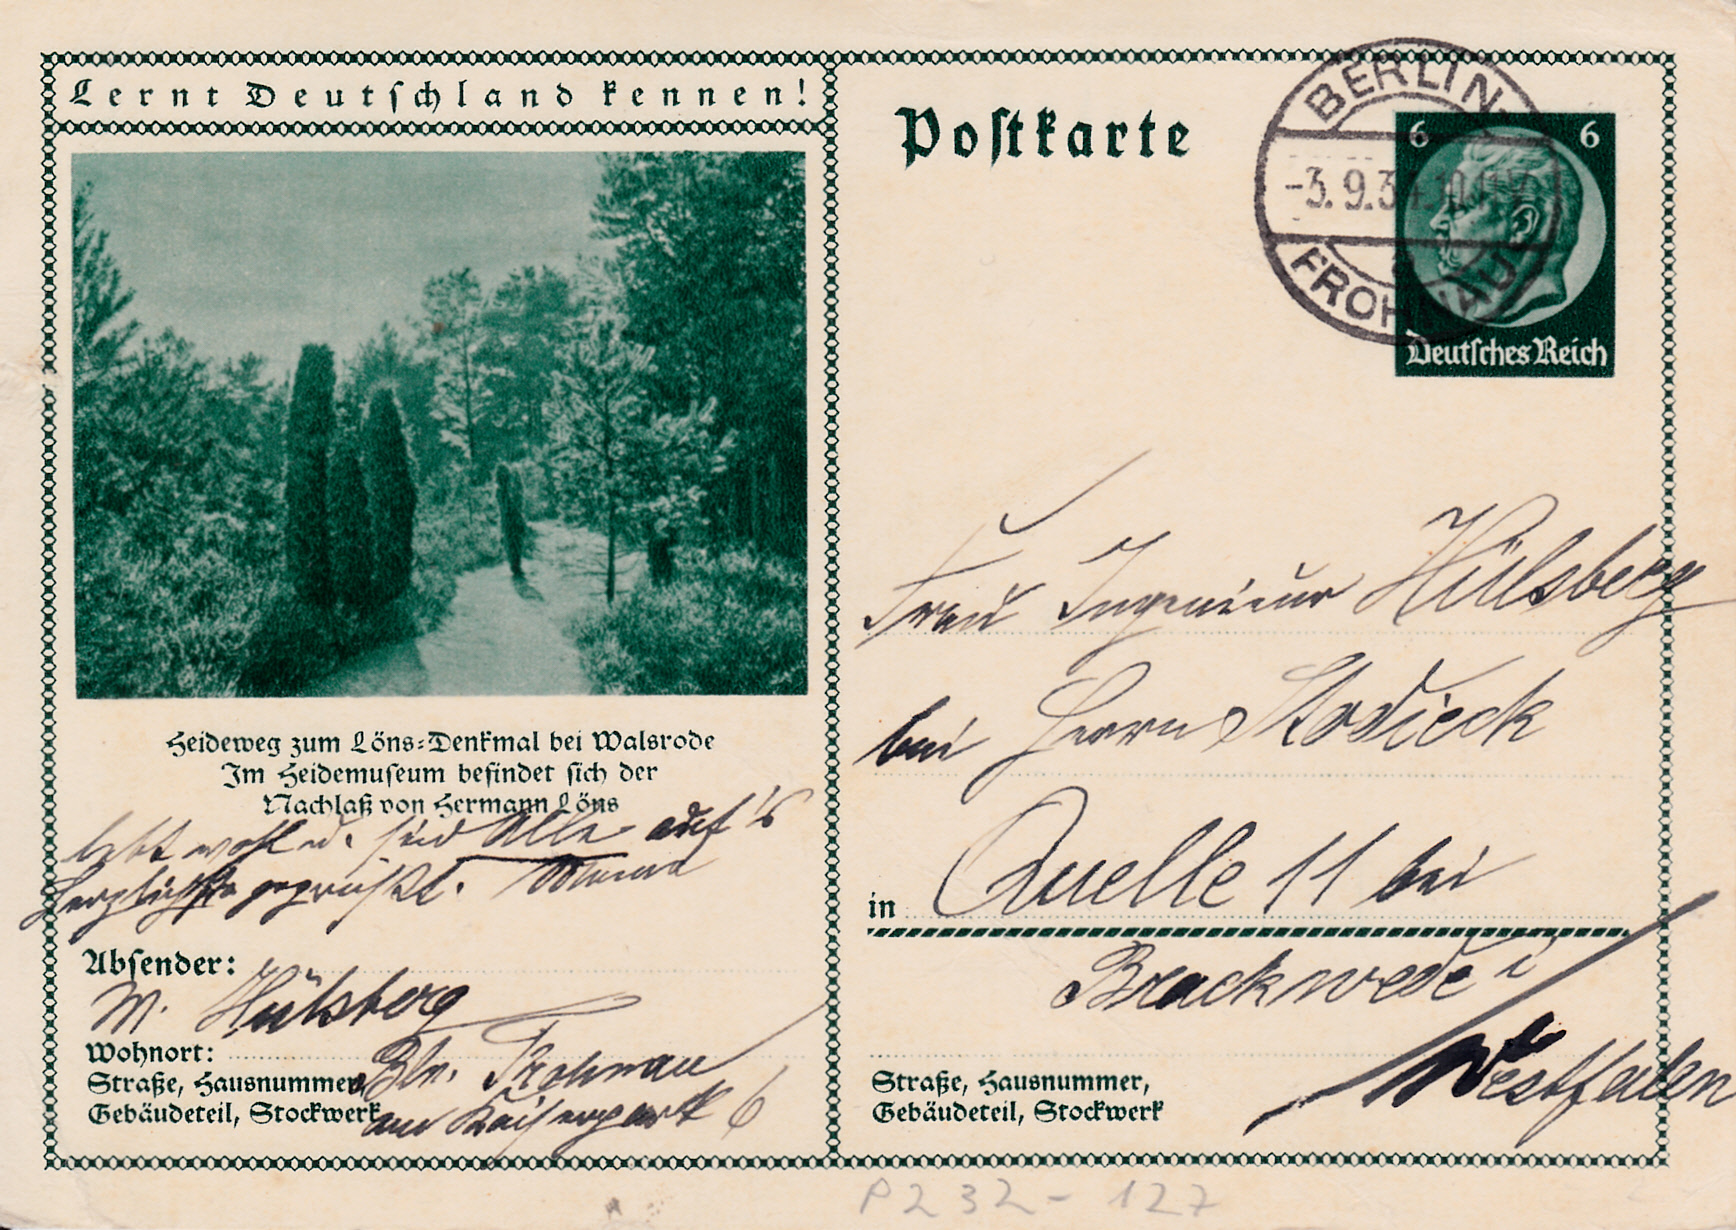 Lernt Deutschland kennen!
Heideweg zum Löns-Denkmal bei Walsrode
Im Heidemuseum befindet sich der
Nachlaß von Hermann Löns
lebt wohl u. seid Alle auf's
herzlichste gegrüßt.
Absender:
W. Hülsberg
Wohnort:
Bln. Frohnau
Straße, Hausnummer,
Gebäudeteil, Stockwerk
am Kaiserpark 6
Postkarte
BERLIN-
-3.9.34.10
FROHNAU
6 6
Deutsches Reich
Frau Ingenieur Hülsberg
bei Herrn Stodieck
in Quelle 11 bei
Brackwede i
Westfalen
Straße, Hausnummer,
Gebäudeteil, Stockwerk
P232-127